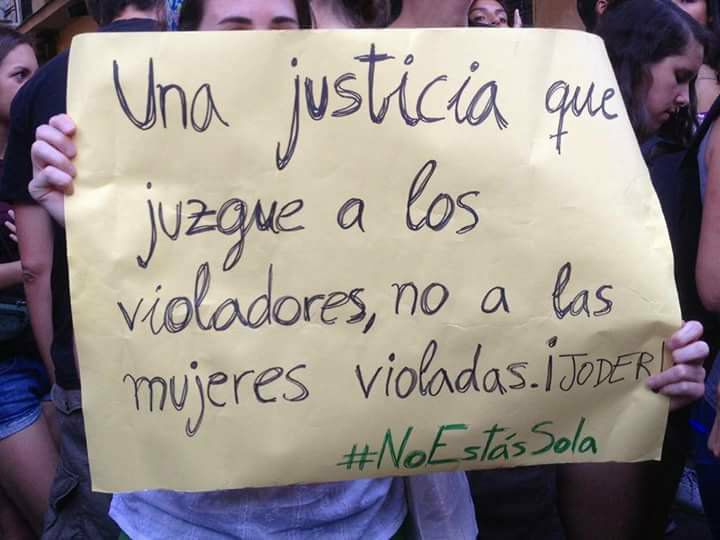 Una justicia que
juzgue a los
violadores, no a las
mujeres violadas. ¡JODER!
#NoEstásSola